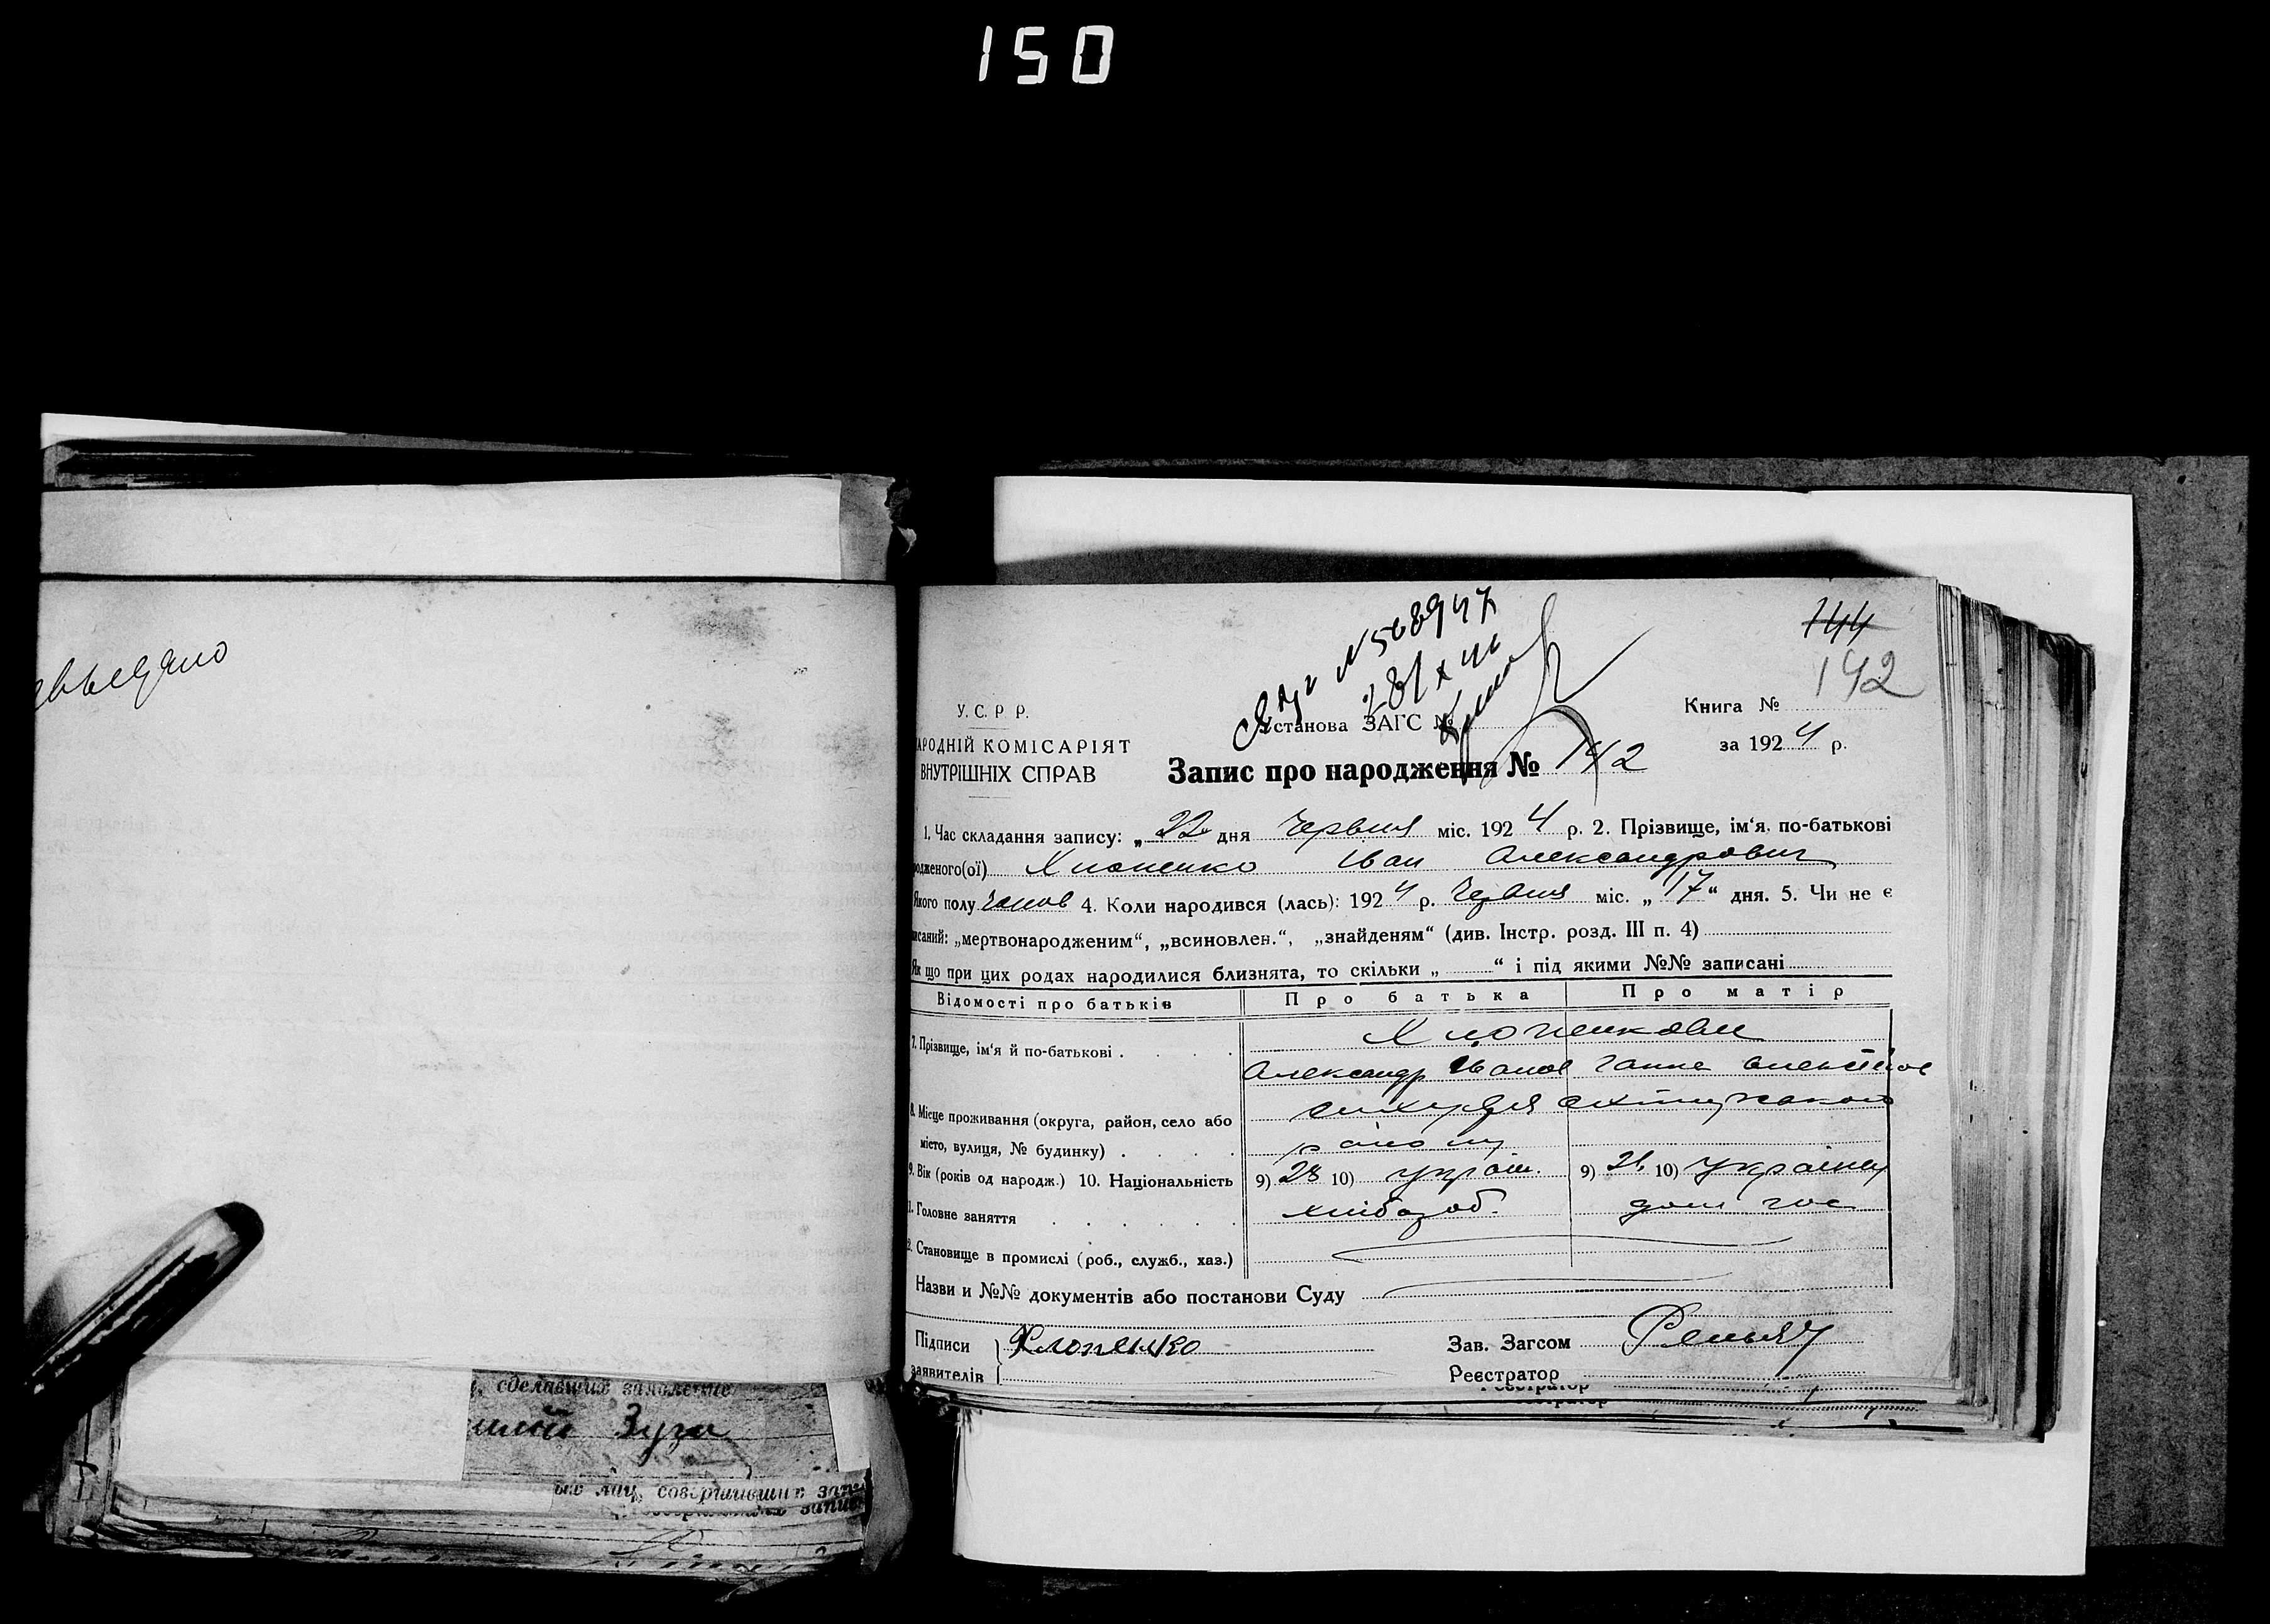 150
144
142
У. С. Р Р.
АРОДНІЙ КОМІСАРІЯТ
ВНУТРІШНІХ СПРАВ
№ 568947
Установа ЗАГС №
Книга №
за 1924 р.
Запис про народження № 142
1. Час складання запису: „22“ дня Червня міс. 1924 р. 2. Прізвище, ім'я, по-батькові
родженого(ої) Хлопенко Іван Александрович
Якого полу чолов 4. Коли народився (лась): 1924 р. Червня міс. „17“ дня. 5. Чи не є
писаний: „мертвонародженим“, „всиновлен.“, „знайденям“ (див. Інстр. розд. III п. 4)
Як що при цих родах народилися близнята, то скільки „ “ і під якими №№ записані
Відомості про батьків Про батька Про матір
7. Прізвище, ім'я й по-батькові . Хлопенкови
Александр Іванов Ганна
8. Місце проживання (округа, район, село або
місто, вулиця, № будинку) . району
9. Вік (років од народж.) 10. Національність 9) 28 10) україн. 9) 21 10) українка
11. Головне заняття хлібороб. дом гос
2. Становище в промислі (роб., служб., хаз.)
Назви и №№ документів або постанови Суду
Підписи Хлопенко Зав. Загсом
заявителів Реєстратор
Реєстратор
, сделавших заявление
Зуга
ых лиц, совершивших запи